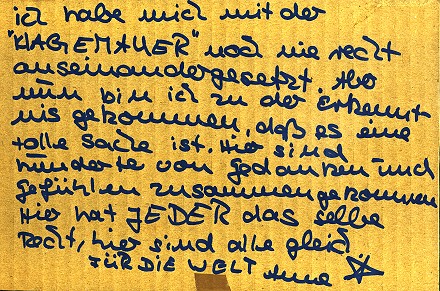 ich habe mich mit der
"KLAGEMAUER" noch nie recht
auseinandergesetzt. Aber
nun bin ich zu der Erkennt
nis gekommen, daß es eine
tolle Sache ist. Hier sind
hunderte von Gedanken und
Gefühlen zusammengekommen
Hier hat JEDER das selbe
Recht, hier sind alle gleich
FÜR DIE WELT Anne